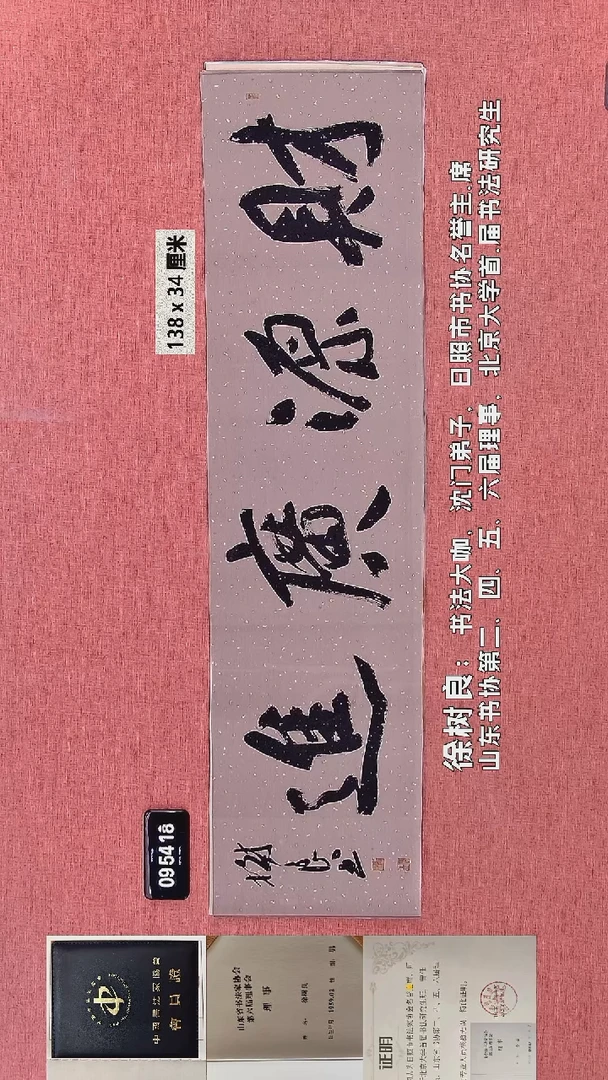 138 x 34 厘米
財源廣進
樹良
徐树良： 书法大咖、沈门弟子、日照市书协名誉主.席
山东书协第二、四、五、六届理事、北京大学首.届书法研究生
09 54 18
中國書法家協會
會員證
山东省书法家协会
第六届理事会
理事
徐树良
证明